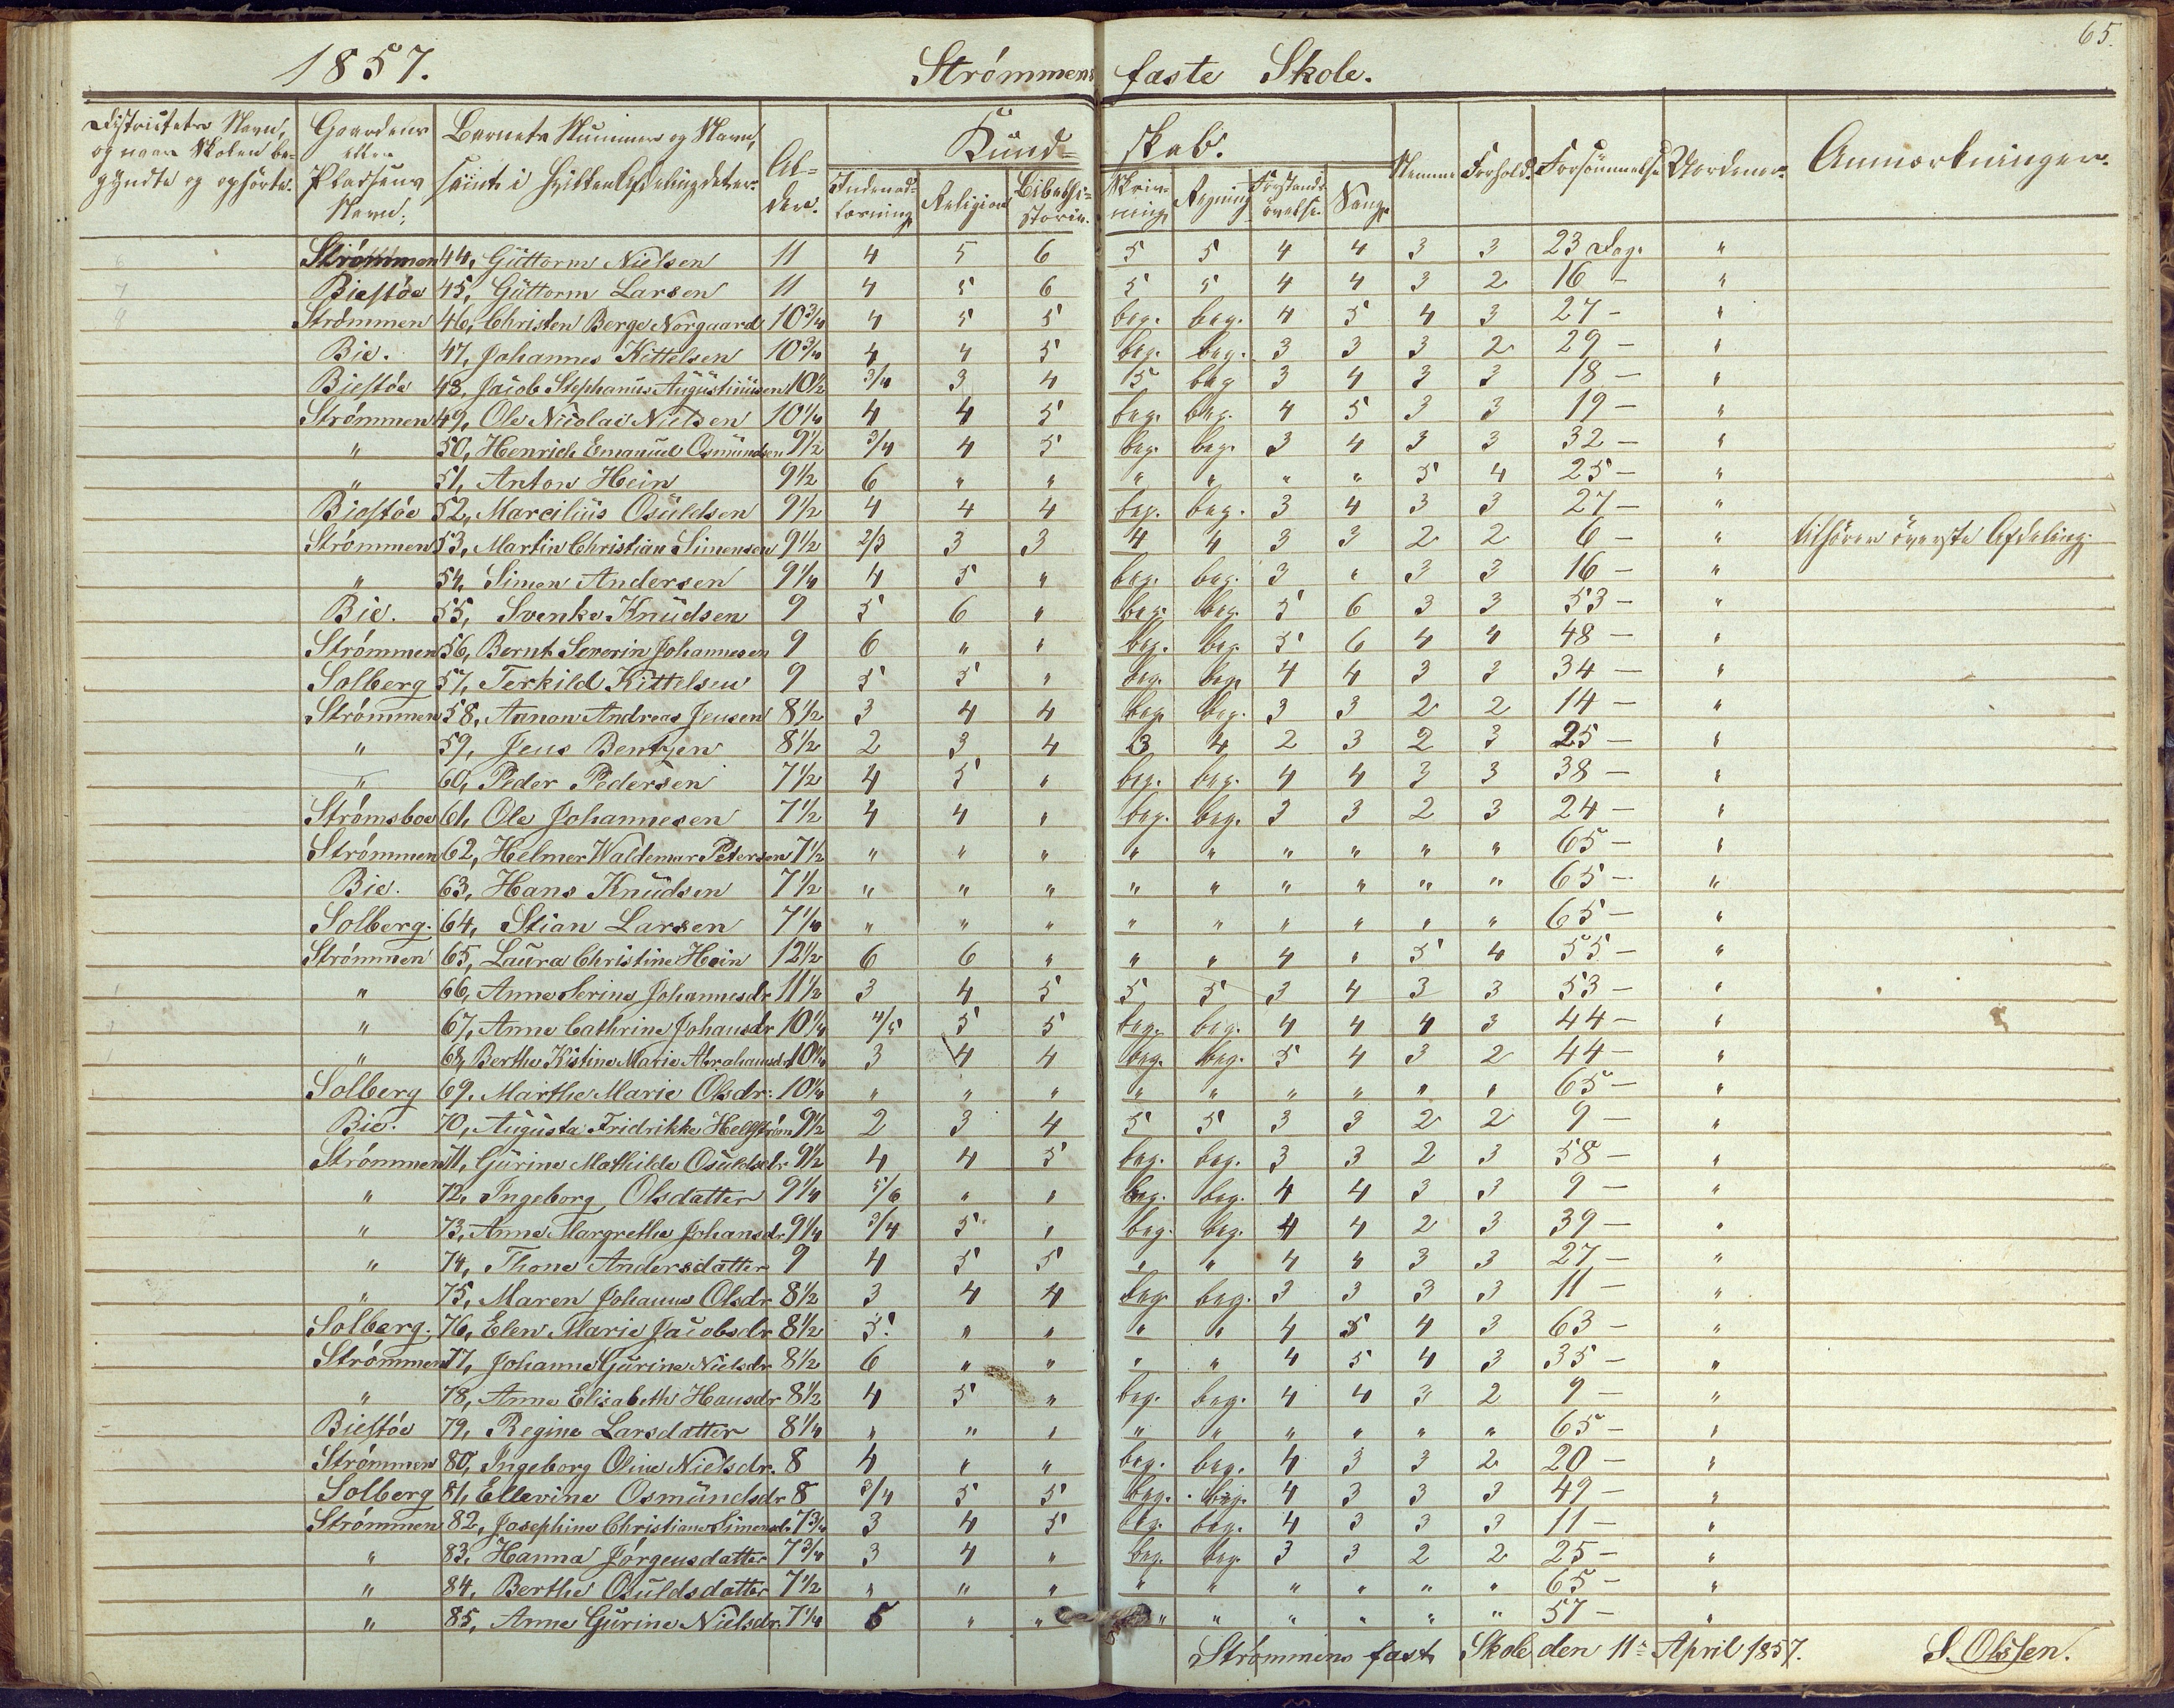 65.
1857. Strømmens faste Skole.
Districtets Navn, og naar Skolen begyndte og ophørte. Gaardens eller Pladsens Navn. Barnets Nummer og Navn, samt i hvilken Afdeling det er. Alder. Kundskab. Indenadlæsning Religion Bibelhistorie. Skrivning Regning Forstandsøvelse. Sang. Nemme Forhold. Forsømmelse Verdener. Anmærkninger.
Strømmen 44, Guttorm Nielsen 11 4 5 6 5 5 4 4 3 3 23 Dag. "
Biestøe 45, Guttorm Larsen 11 4 5 6 5 5 4 4 3 2 16 - "
Strømmen 46, Christen Berge Nørgaard 10 3/4 4 5 5 beg. beg. 4 5 4 3 27 - "
Bie. 47, Johannes Kittelsen 10 3/4 4 4 5 beg. beg. 3 3 3 2 29 - "
Biestøe 48, Jacob Stephanus Augustinusen 10 1/2 3/4 3 4 5 beg 3 4 3 3 18 - "
Strømmen 49, Ole Nicolai Nielsen 10 1/4 4 4 5 beg. beg. 4 5 3 3 19 - "
" 50, Henrich Emanuel Osmundsen 9 1/2 3/4 4 5 beg. beg. 3 4 3 3 32 - "
" 51, Anton Hein 9 1/2 6 " " " " " " 5 4 25 - "
Biestøe 52, Marcilius Osuldsen 9 1/2 4 4 4 beg. beg. 3 4 3 3 27 - "
Strømmen 53, Martin Christian Simensen 9 1/2 2/3 3 3 4 4 3 3 2 2 6 - " tilhører øverste Afdeling.
" 54, Simon Andersen 9 1/4 4 5 " beg. beg. 3 " 3 3 16 - "
Bie. 55, Svenke Knudsen 9 5 6 " beg. beg. 5 6 3 3 53 - "
Strømmen 56, Bernt Severin Johannesen 9 6 " " beg. beg. 5 6 4 4 48 - "
Solberg 57, Terkild Kittelsen 9 5 5 " beg. beg. 4 4 3 3 34 - "
Strømmen 58, Aanon Andreas Jensen 8 1/2 3 4 4 beg. beg. 3 3 2 2 14 - "
" 59, Jens Bentzen 8 1/2 2 3 4 3 4 2 3 2 3 25 - "
" 60, Peder Pedersen 7 1/2 4 5 " beg. beg. 4 4 3 3 38 - "
Strømsboe 61, Ole Johannesen 7 1/2 4 4 " beg. beg. 3 3 2 3 24 - "
Strømmen 62, Helmer Waldemar Petersen 7 1/2 " " " " " " " " " 65 - "
Bie. 63, Hans Knudsen 7 1/2 " " " " " " " " " 65 - "
Solberg. 64, Stian Larsen 7 1/4 " " " " " " " " " 65 - "
Strømmen 65, Laura Christine Hein 12 1/2 6 6 " " " 4 " 5 4 55 - "
" 66, Anne Serine Johannesdr 11 1/2 3 4 5 5 5 3 4 3 3 53 - "
" 67, Anne Cathrine Johansdr 10 1/4 4/5 5 5 beg. beg. 4 4 4 3 44 - "
" 68, Berthe Kistine Marie Abrahamsdr 10 1/4 3 4 4 beg. beg. 5 4 3 2 44 - "
Solberg 69. Marthe Marie Olsdr: 10 1/4 " " " " " " " " " 65 - "
Bie. 70, Augusta Fridrikke Hellstrøm 9 1/2 2 3 4 5 5 3 3 2 2 9 - "
Strømmen 71, Gurine Mathilde Osuldsdr 9 1/2 4 4 5 beg. beg. 3 3 2 3 58 - "
" 72, Ingeborg Olsdatter 9 1/4 5/6 " " beg. beg. 4 4 3 3 9 - "
" 73, Anne Margrethe Johansdr 9 1/4 3/4 5 " beg. beg. 4 4 2 3 39 - "
" 74, Thone Andersdatter 9 4 5 5 " " 4 " 3 3 27 - "
" 75, Maren Johanne Olsdr 8 1/2 3 4 4 beg. beg. 3 3 3 3 11 - "
Solberg. 76, Elen Marie Jacobsdr 8 1/2 5. " " " " 4 5 4 3 63 - "
Strømmen 77, Johanne Gurine Nielsdr 8 1/2 6 " " " " 4 5 4 3 35 - "
" 78, Anne Elisabeth Hansdr 8 1/2 4 5 " beg. beg. 4 4 3 2 9 - "
Biestøe 79, Regine Larsdatter 8 1/4 " " " " " " " " " 65 - "
Strømmen 80, Ingeborg Oline Nielsdr. 8 4 " " beg. beg. 4 3 3 2 20 - "
Solberg 81, Ellevine Osmundsdr 8 3/4 5 5 beg. beg. 4 3 3 3 49 - "
Strømmen 82, Josephine Christiane Simensdr 7 3/4 3 4 5 beg. beg. 4 3 3 3 11 - "
" 83, Hanna Jørgensdatter 7 3/4 3 4 " beg. beg. 3 3 2 2 25 - "
" 84, Berthe Osuldsdatter 7 1/2 " " " " " " " " " 65 - "
" 85, Anne Gurine Nielsdr. 7 1/4 5 " " " " " " " " 57 - "
Strømmens fast Skole den 11te April 1857. S. Olssen.